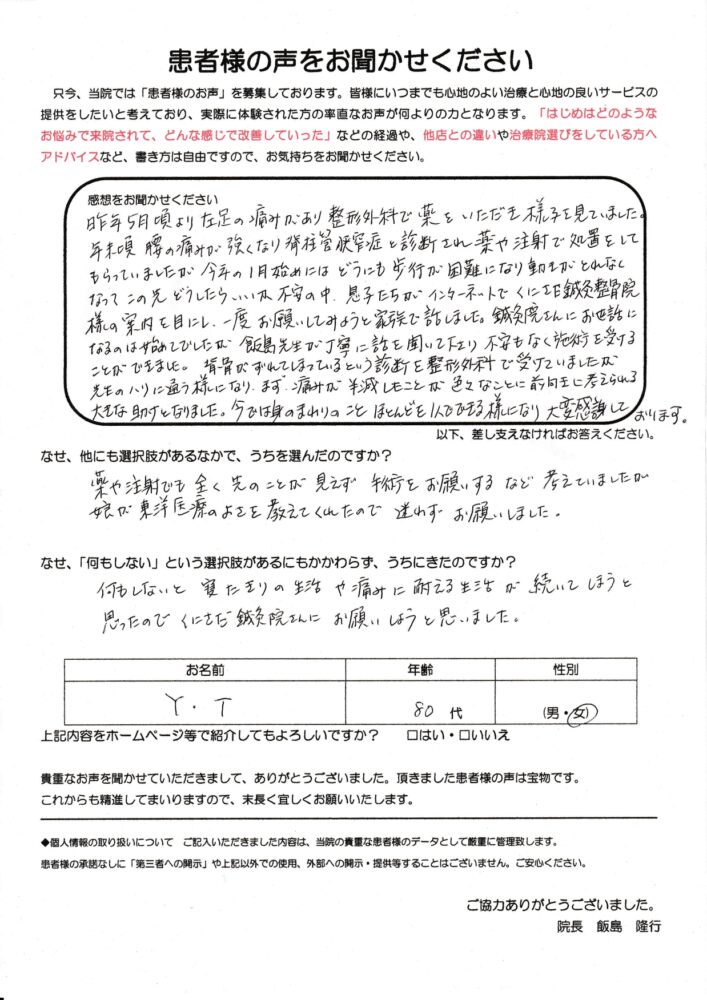 患者様の声をお聞かせください
只今、当院では「患者様のお声」を募集しております。皆様にいつまでも心地のよい治療と心地の良いサービスの
提供をしたいと考えており、実際に体験された方の率直なお声が何よりの力となります。「はじめはどのような
お悩みで来院されて、どんな感じで改善していった」などの経過や、他店との違いや治療院選びをしている方へ
アドバイスなど、書き方は自由ですので、お気持ちをお聞かせください。
感想をお聞かせください
昨年5月頃より左足の痛みがあり整形外科で薬をいただき様子を見ていました。
年末頃 腰の痛みが強くなり脊柱管狭窄症と診断され薬や注射で処置をして
もらっていましたが今年の1月始めにはどうにも歩行が困難になり動きがとれなく
なってこの先どうしたらいいか不安の中、息子たちがインターネットでくにさだ鍼灸整骨院
様の案内を目にし、一度お願いしてみようと家族で話しました。鍼灸院さんにお世話に
なるのは始めてでしたが飯島先生が丁寧に話を聞いて下さり不安もなく施術を受ける
ことができました。背骨がずれてしまっているという診断を整形外科で受けていましたが
先生のハリに通う様になり、まず、痛みが半減したことが色々なことに前向きに考えられる
大きな助けとなりました。今では身のまわりのことほとんどを1人でできる様になり大変感謝しております。
以下、差し支えなければお答えください。
なぜ、他にも選択肢があるなかで、うちを選んだのですか？
薬や注射でも全く先のことが見えず 手術をお願いするなど考えていましたが
娘が東洋医療のよさを教えてくれたので迷わずお願いしました。
なぜ、「何もしない」という選択肢があるにもかかわらず、うちにきたのですか？
何もしないと寝たきりの生活や痛みに耐える生活が続いてしまうと
思ったのでくにさだ鍼灸院さんにお願いしようと思いました。
お名前 年齢 性別
Y・T 80代 (男・女)
上記内容をホームページ等で紹介してもよろしいですか？ □はい・□いいえ
貴重なお声を聞かせていただきまして、ありがとうございました。頂きました患者様の声は宝物です。
これからも精進してまいりますので、末長く宜しくお願いいたします。
◆個人情報の取り扱いについて ご記入いただきました内容は、当院の貴重な患者様のデータとして厳重に管理致します。
患者様の承諾なしに「第三者への開示」や上記以外での使用、外部への開示・提供等することはございません。ご安心ください。
ご協力ありがとうございました。
院長 飯島 隆行